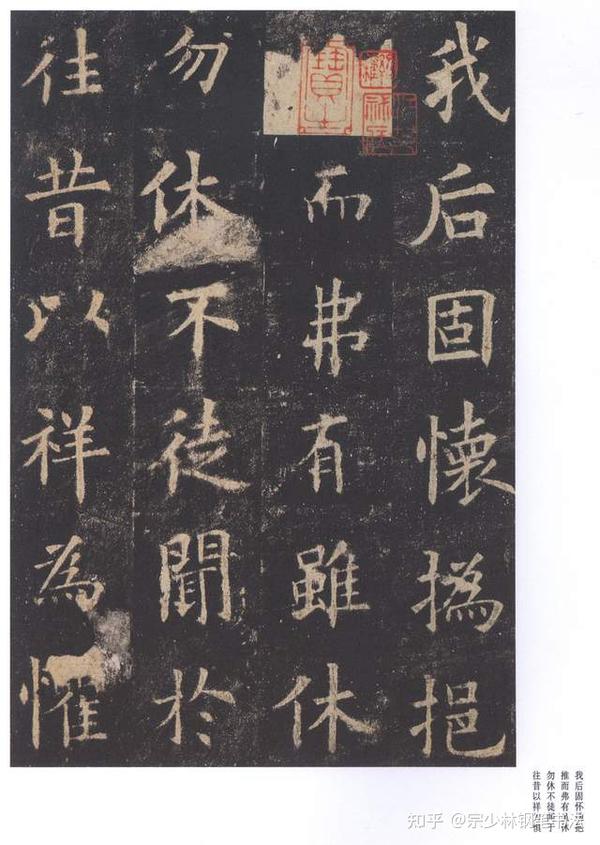 我后固懷撝挹
而弗有雖休
勿休不徒聞於
往昔以祥為懼
我后固怀挹
推而弗有休
勿休不徒于
往昔以祥惧
知乎 @宗少林钢笔书法